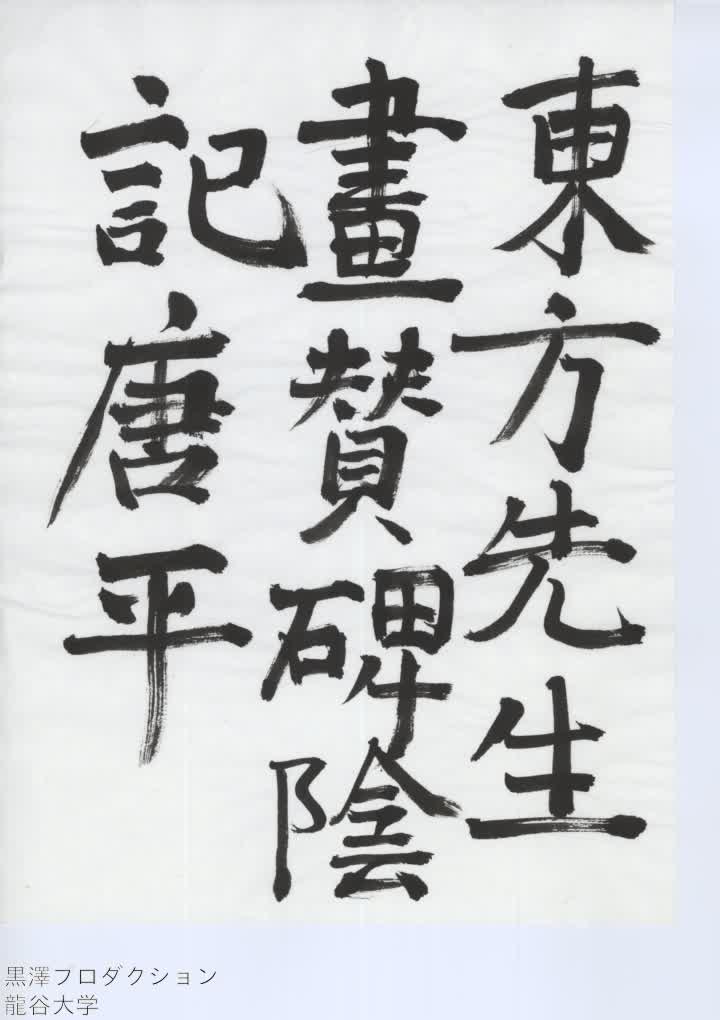 東方先生
畫賛碑陰
記唐平
黒澤プロダクション
龍谷大学